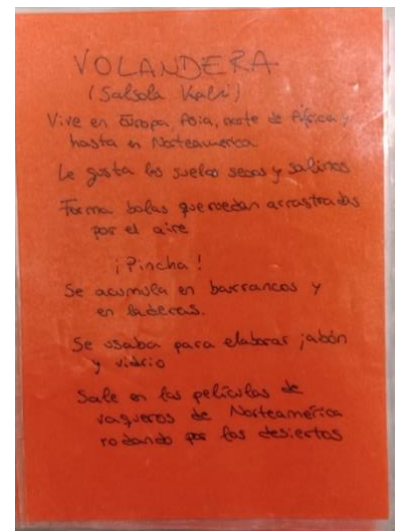 VOLANDERA
(Salsola Kali)
Vive en Europa, Asia, norte de África y
hasta en Norteamérica
Le gusta los suelos secos y salinos
Forma bolas que ruedan arrastradas
por el aire
¡Pincha!
Se acumula en barrancos y
en laderas.
Se usaba para elaborar jabón
y vidrio
Sale en las películas de
vaqueros de Norteamérica
rodando por los desiertos